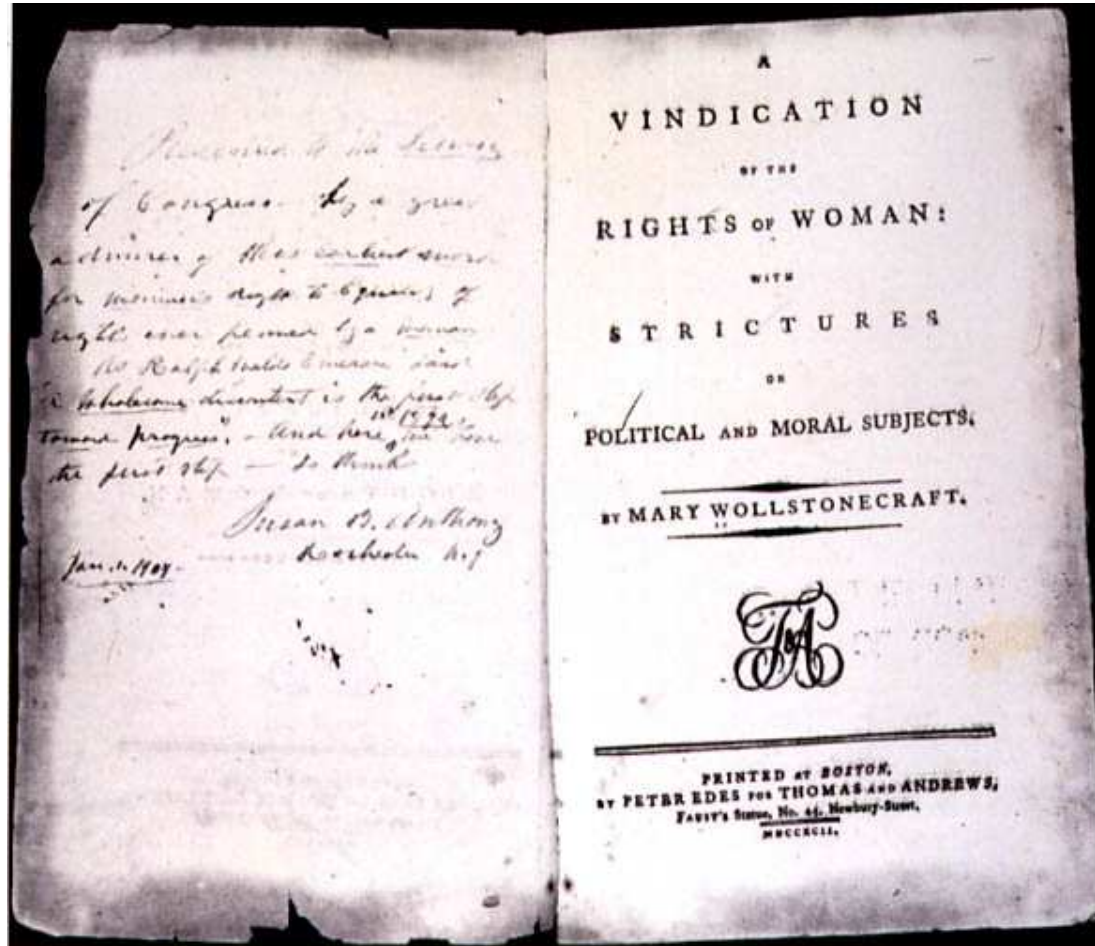 Presented to the Library
of Congress by a great
admirer of this earliest work
for woman's Right to Equality of
right ever penned by a woman
As Ralph Waldo Emerson said
"A Wholesome discontent is the first step
toward progress." – And here, in 1792, we have
the first step – so thinks
Susan B. Anthony
Rochester N.Y
Jan. 1. 1904.
A
VINDICATION
OF THE
RIGHTS OF WOMAN:
WITH
STRICTURES
ON
POLITICAL AND MORAL SUBJECTS.
BY MARY WOLLSTONECRAFT.
T&A
PRINTED AT BOSTON,
BY PETER EDES FOR THOMAS AND ANDREWS,
FAUST'S Statue, No. 45, Newbury-Street,
MDCCXCII.